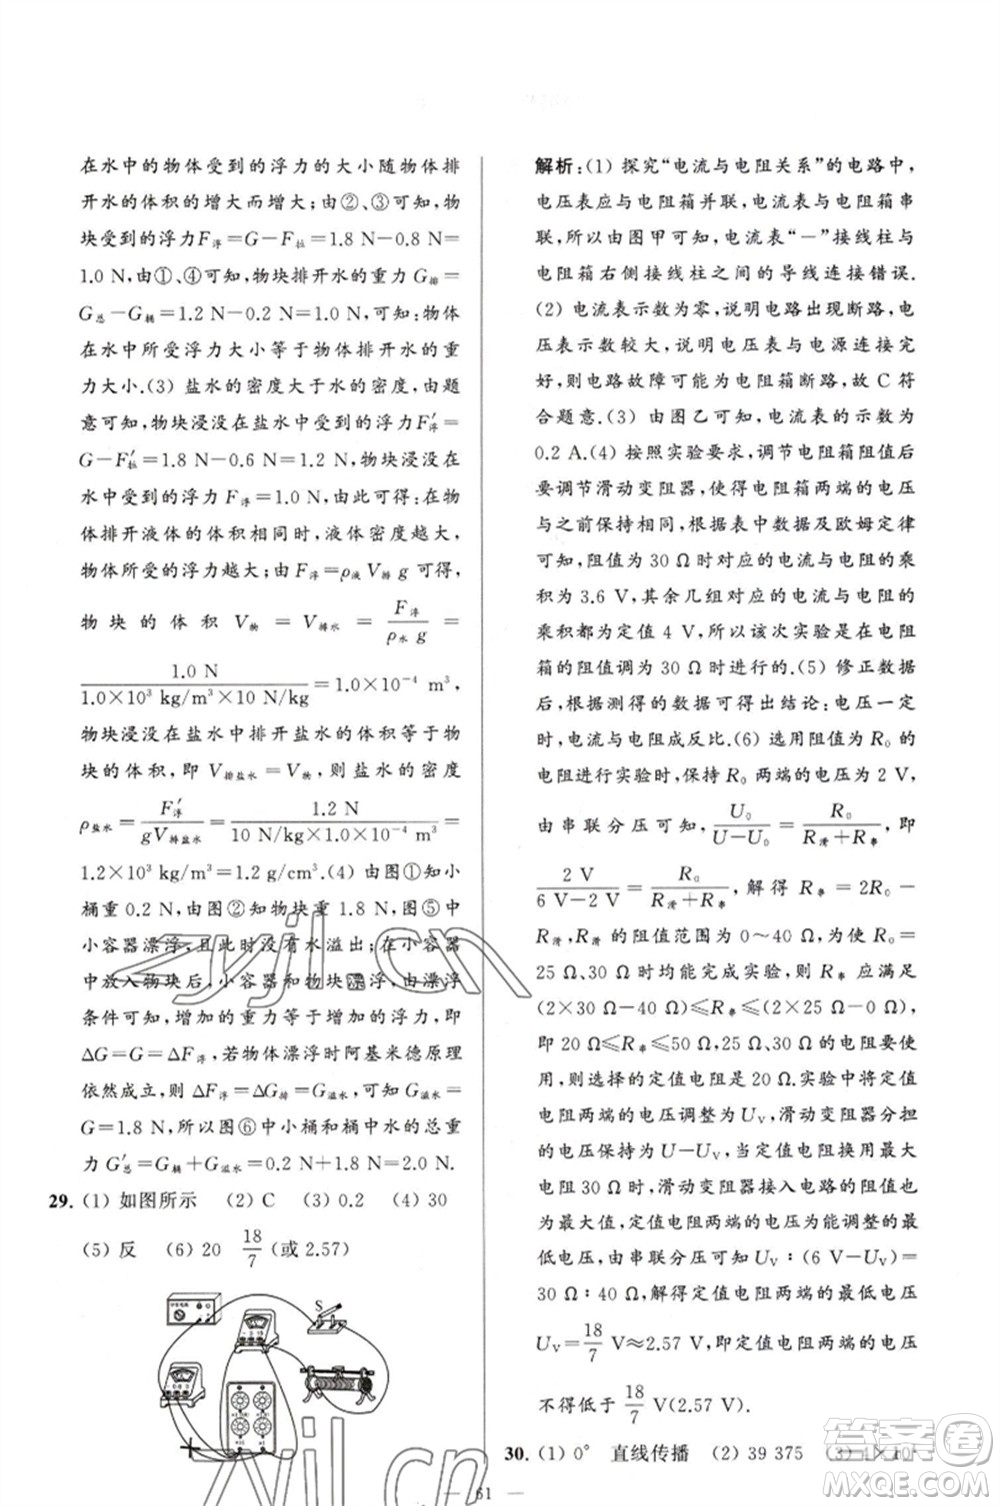 在水中的物体受到的浮力的大小随物体排
开水的体积的增大而增大；由②、③可知，物
块受到的浮力F浮＝G－F拉＝1.8 N－0.8 N＝
1.0 N，由①、④可知，物块排开水的重力G排＝
G总－G桶＝1.2 N－0.2 N＝1.0 N，可知：物体
在水中所受浮力大小等于物体排开水的重
力大小.(3) 盐水的密度大于水的密度，由题
意可知，物块浸没在盐水中受到的浮力F′浮＝
G－F′拉＝1.8 N－0.6 N＝1.2 N，物块浸没在
水中受到的浮力F浮＝1.0 N，由此可得：在物
体排开液体的体积相同时，液体密度越大，
物体所受的浮力越大；由F浮＝ρ液V排g可得，
物块的体积V物＝V排水＝F浮/ρ水g＝
1.0 N/1.0×10³ kg/m³×10 N/kg＝1.0×10⁻⁴ m³，
物块浸没在盐水中排开盐水的体积等于物
块的体积，即V排盐水＝V物，则盐水的密度
ρ盐水＝F′浮/gV排盐水＝1.2 N/10 N/kg×1.0×10⁻⁴ m³＝
1.2×10³ kg/m³＝1.2 g/cm³.(4) 由图①知小
桶重0.2 N，由图②知物块重1.8 N，图⑤中
小容器漂浮，且此时没有水溢出；在小容器
中放入物块后，小容器和物块漂浮，由漂浮
条件可知，增加的重力等于增加的浮力，即
ΔG＝G＝ΔF浮，若物体漂浮时阿基米德原理
依然成立，则ΔF浮＝ΔG＝G溢水，可知G溢水＝
G＝1.8 N，所以图⑥中小桶和桶中水的总重
力G′总＝G桶＋G溢水＝0.2 N＋1.8 N＝2.0 N.
29. (1) 如图所示 (2) C (3) 0.2 (4) 30
(5) 反 (6) 20 18/7(或2.57)
S
解析：(1) 探究“电流与电阻关系”的电路中，
电压表应与电阻箱并联，电流表与电阻箱串
联，所以由图甲可知，电流表“－”接线柱与
电阻箱右侧接线柱之间的导线连接错误.
(2) 电流表示数为零，说明电路出现断路，电
压表示数较大，说明电压表与电源连接完
好，则电路故障可能为电阻箱断路，故C符
合题意.(3) 由图乙可知，电流表的示数为
0.2 A.(4) 按照实验要求，调节电阻箱阻值后
要调节滑动变阻器，使得电阻箱两端的电压
与之前保持相同，根据表中数据及欧姆定律
可知，阻值为30 Ω时对应的电流与电阻的乘
积为3.6 V，其余几组对应的电流与电阻的
乘积都为定值4 V，所以该次实验是在电阻
箱的阻值调为30 Ω时进行的.(5) 修正数据
后，根据测得的数据可得出结论：电压一定
时，电流与电阻成反比.(6) 选用阻值为R₀的
电阻进行实验时，保持R₀两端的电压为2 V，
由串联分压可知，U₀/U－U₀＝R₀/R滑＋R串，即
2 V/6 V－2 V＝R₀/R滑＋R串，解得R串＝2R₀－
R滑，R滑的阻值范围为0～40 Ω，为使R₀＝
25 Ω、30 Ω时均能完成实验，R串应满足
(2×30 Ω－40 Ω)≤R串≤(2×25 Ω－0 Ω)，
即20 Ω≤R串≤50 Ω，为保证能多次实验使
用，则选择的定值电阻是20 Ω.实验中将定值
电阻两端的电压调整为UV，滑动变阻器分担
的电压保持为U－UV，当定值电阻换用最大
阻值30 Ω时，滑动变阻器接入电路的阻值为
最大值，定值电阻两端的电压为能调整的最
低电压，由串联分压可知UV∶(6 V－UV)＝
30 Ω∶(40 Ω＋30 Ω)，解得定值电阻的电压
UV＝18/7 V≈2.57 V，即定值电阻两端的电压
不得低于18/7 V(2.57 V).
30. (1) 0° 直线传播 (2) 39 375 (3) 4×10
— 61 —
zyjl.cn
zyjl.cn
答案圈
MXQE.COM